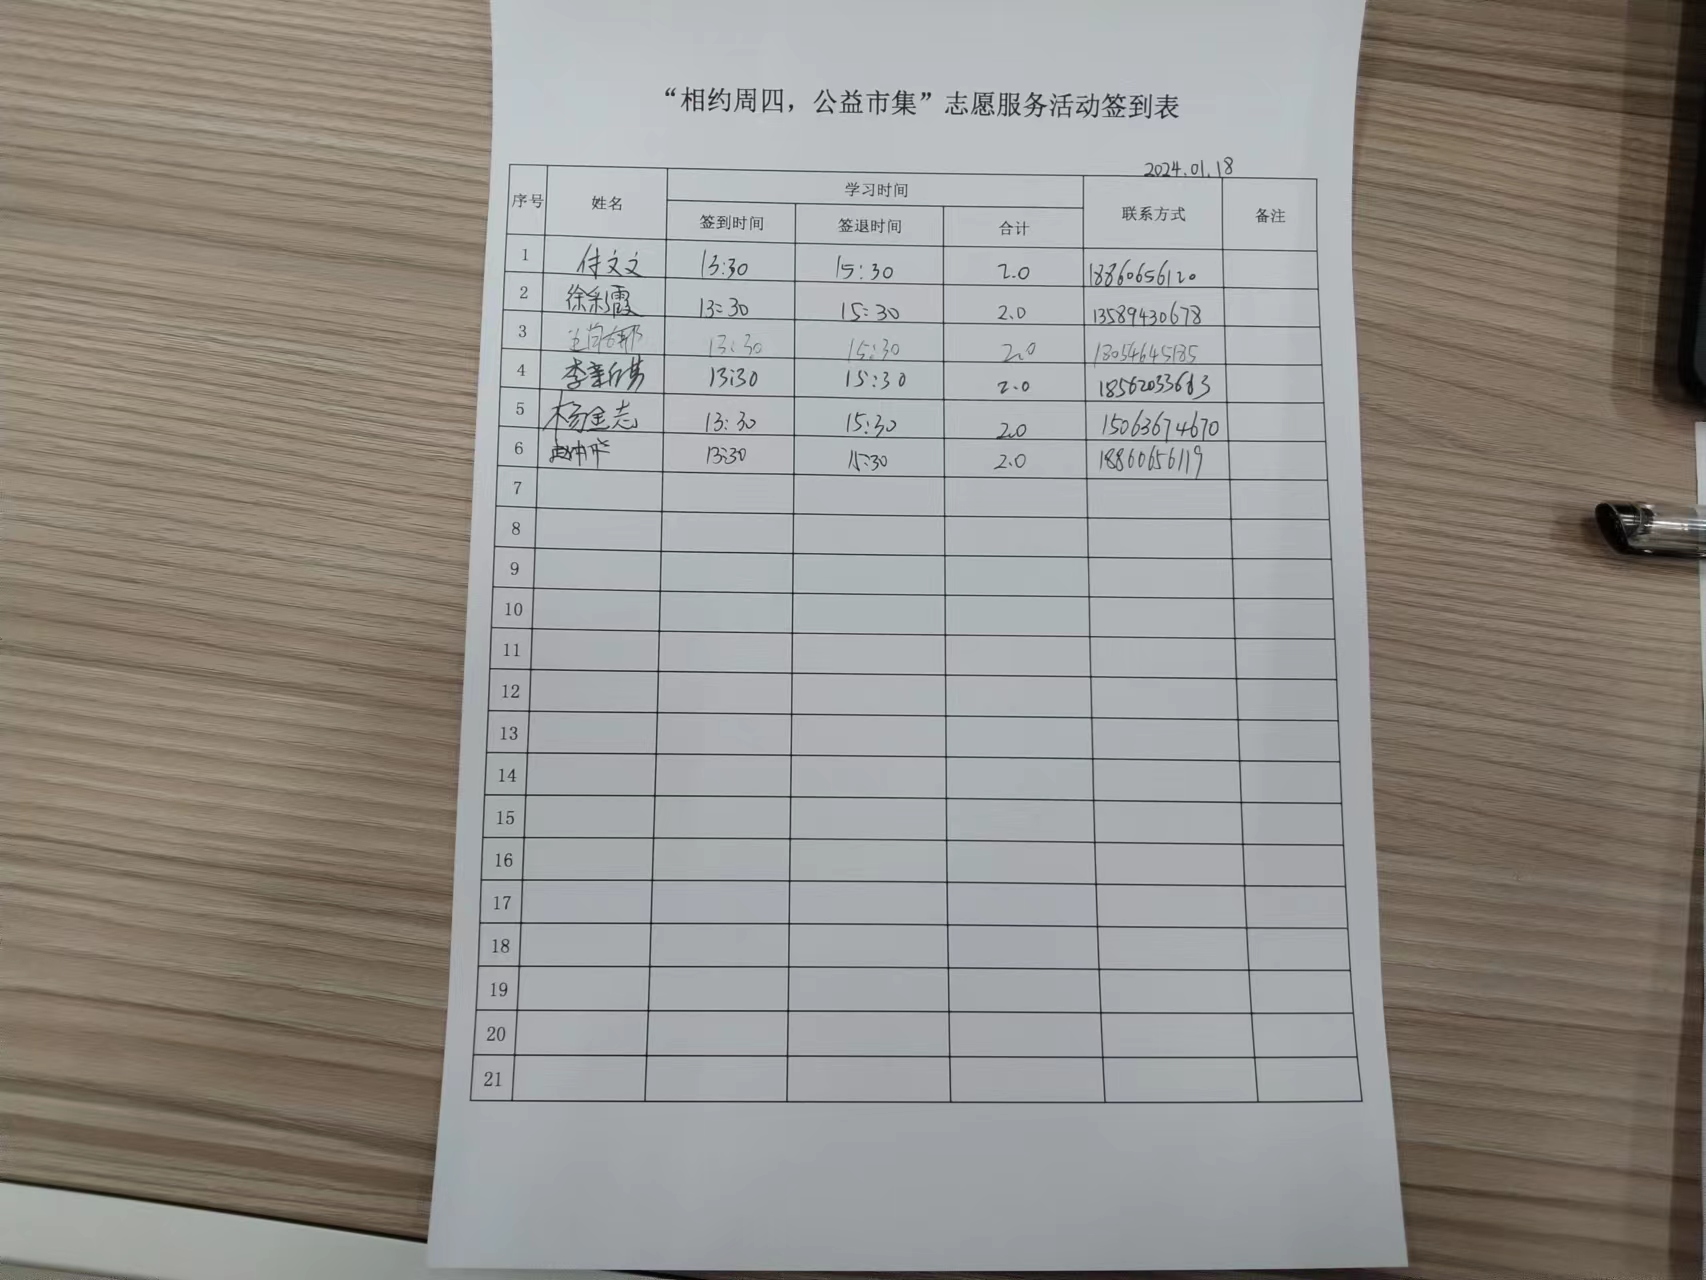 “相约周四，公益市集”志愿服务活动签到表
2024.01.18
序号 姓名 学习时间 联系方式 备注
签到时间 签退时间 合计
1 付文文 13:30 15:30 2.0 18860656120
2 徐彩霞 13:30 15:30 2.0 13589430678
3 13:30 15:30 2.0 18054645185
4 李 13:30 15:30 2.0
5 杨金志 13:30 15:30 2.0 15063674670
6 13:30 15:30 2.0 18860656119
7
8
9
10
11
12
13
14
15
16
17
18
19
20
21